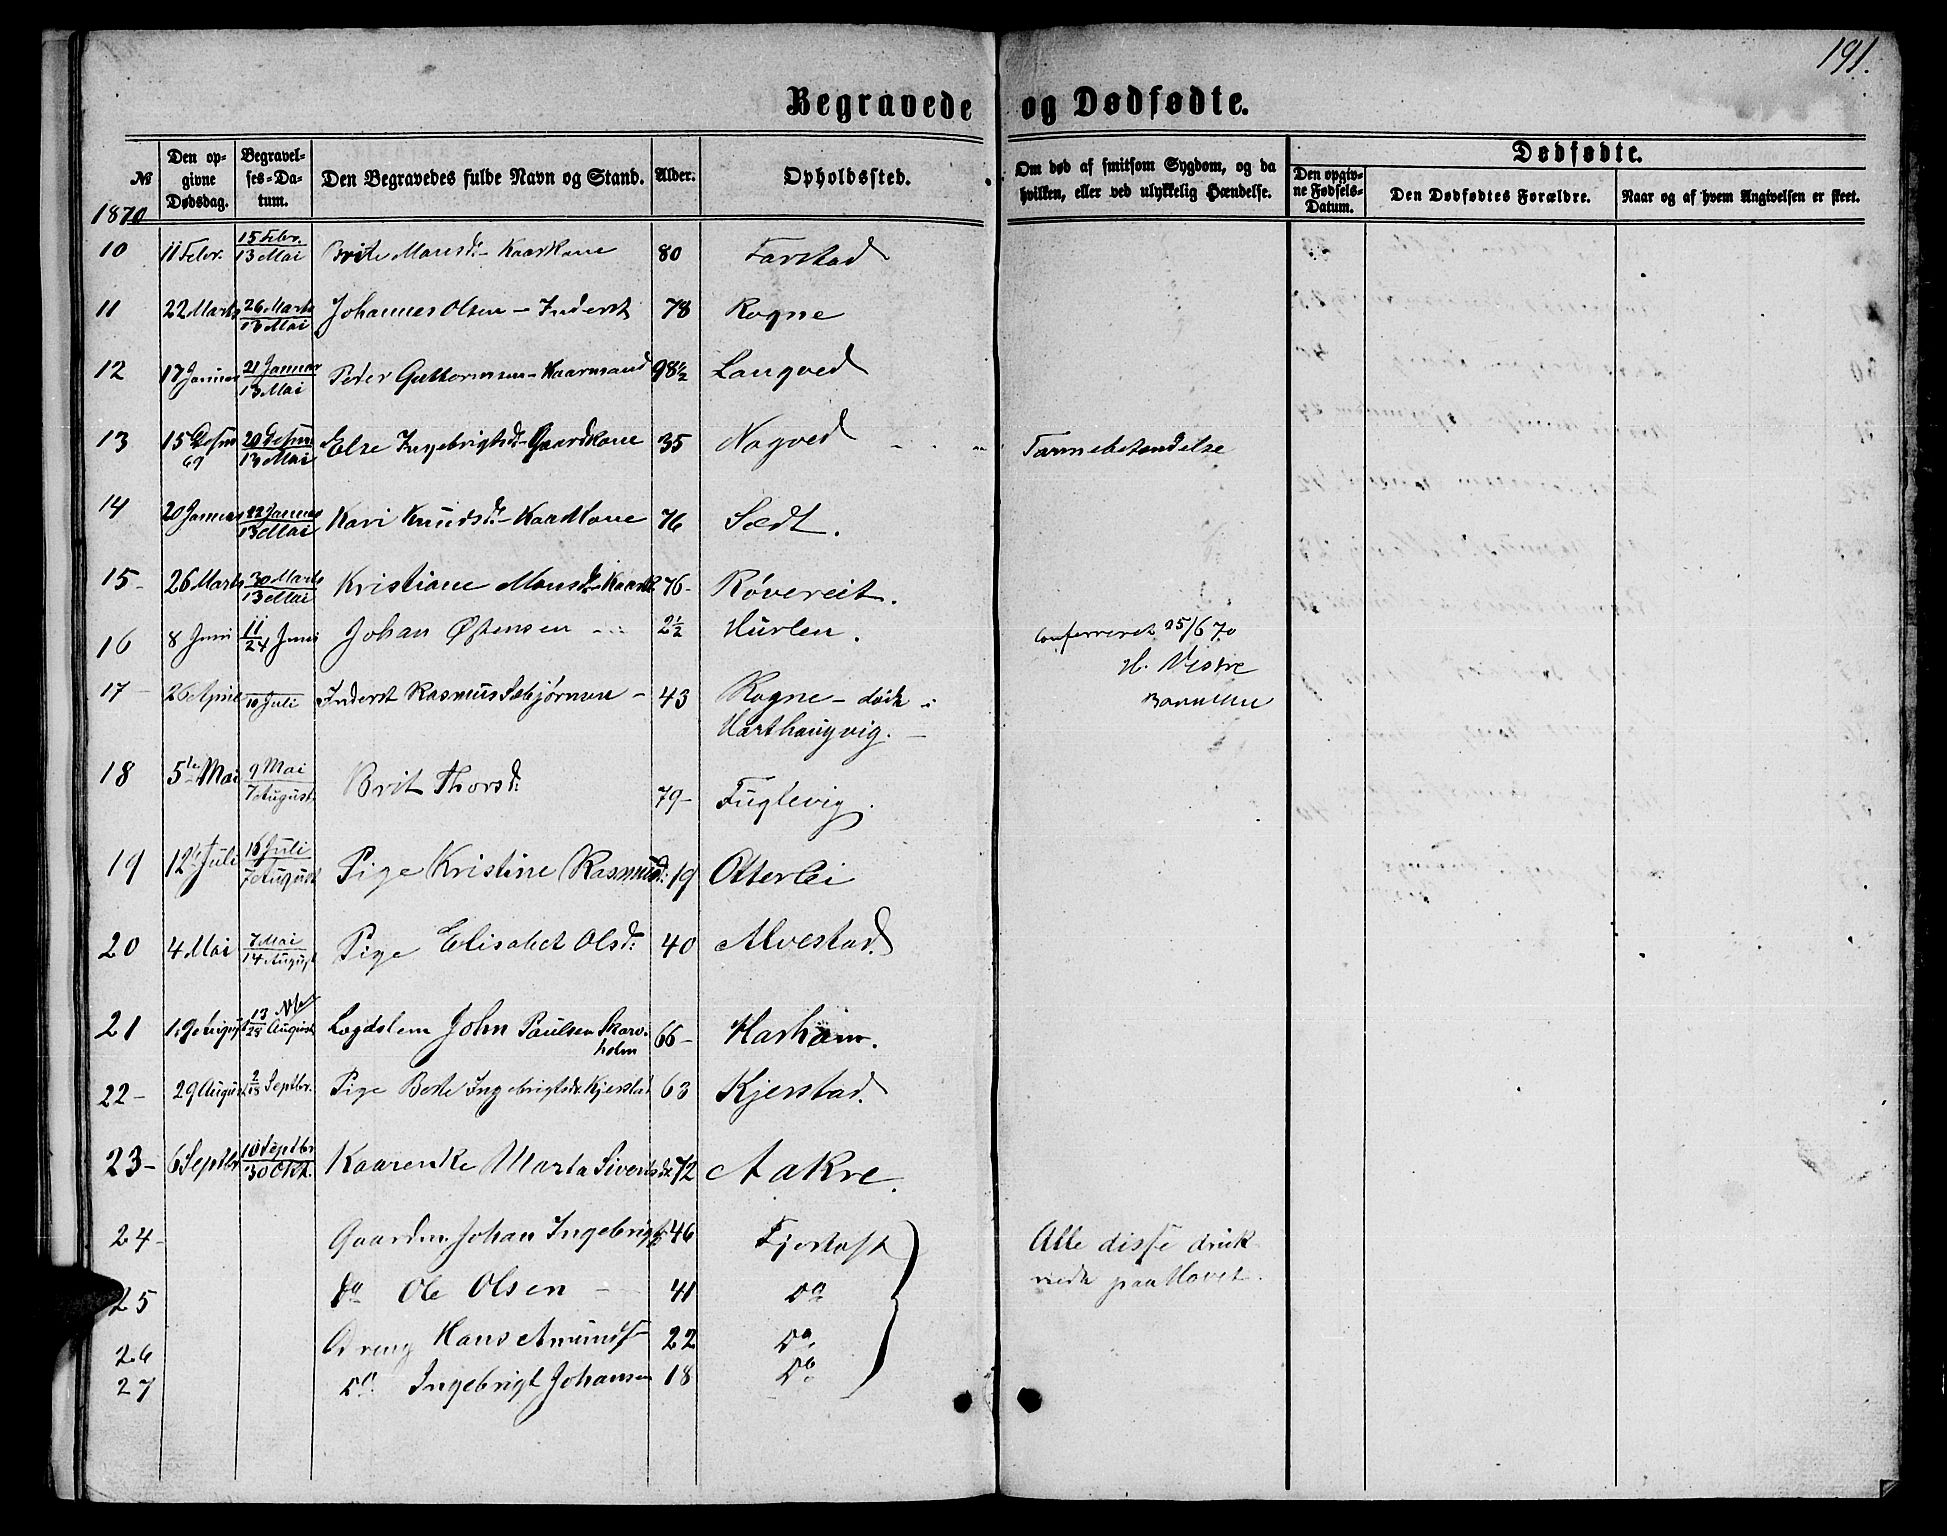 191.
Begravede og Dødfødte.
№ Den opgivne Dødsdag. Begravelses-Datum. Den Begravedes fulde Navn og Stand. Alder. Opholdssted. Om død af smitsom Sygdom, og da hvilken, eller ved ulykkelig Hændelse. Dødfødte.
Den opgivne Fødsels-Datum. Den Dødfødtes Forældre. Naar og af hvem Angivelsen er skeet.
1870
10 11 Febr. 15 Febr. 13 Mai Brite Monsd: Kaarkone 80 Farstad
11 22 Marts 26 Marts 13 Mai Johannes Olsen - Inderst 78 Rogne
12 17 Januar 21 Januar 13 Mai Peder Guttormsen - Kaarmand 98½ Langved
13 15 Desm 69 20 Desm 13 Mai Else Ingebrigtsd - Gaardkone 35 Nogved Tarmebetændelse
14 20 Januar 22 Januar 13 Mai Kari Knudsd: - Kaarkone 76 Sædt.
15 - 26 Marts 30 Marts 13 Mai Kristiane Monsd: Kaark. 76 - Røvereit.
16 8 Juni 11/24 Juni Johan Østensen 2½ Hurlen. confereret 25/6 70
H. Vestre
17 26 April 10 Juli Inderst Rasmus Sebjørnsen - 43 Rogne - døde i
Harthaugvig. -
18 5te Mai 9 Mai 7 August Brit Thorsd: 79 - Fuglevig.
19 12 Juli 16 Juli 7 August Pige Kristine Rasmusd: 19 Otterlei
20 4 Mai 7 Mai 14 August Pige Elisabet Olsd: 40 Alvestad.
21 19 August 13/28 August Lægdslem John Paulsen Skarvholm 66 - Harham.
22 - 29 August 2/18 Septbr. Pige Berte Ingebrigtsd. Kjerstad 63 Kjerstad.
23 - 6 Septbr 10 Septbr 30 Okt. Kaarenke Marta Sivertsd: 72 Aakre.
24 - Gaardm. Johan Ingebrigts 46 Fjørtoft Alle disse druk-
nede paa Havet.
25 do Ole Olsen 41 do
26 Dreng Hans Amunds 22 do
27 do. Ingebrigt Johansen 18 do